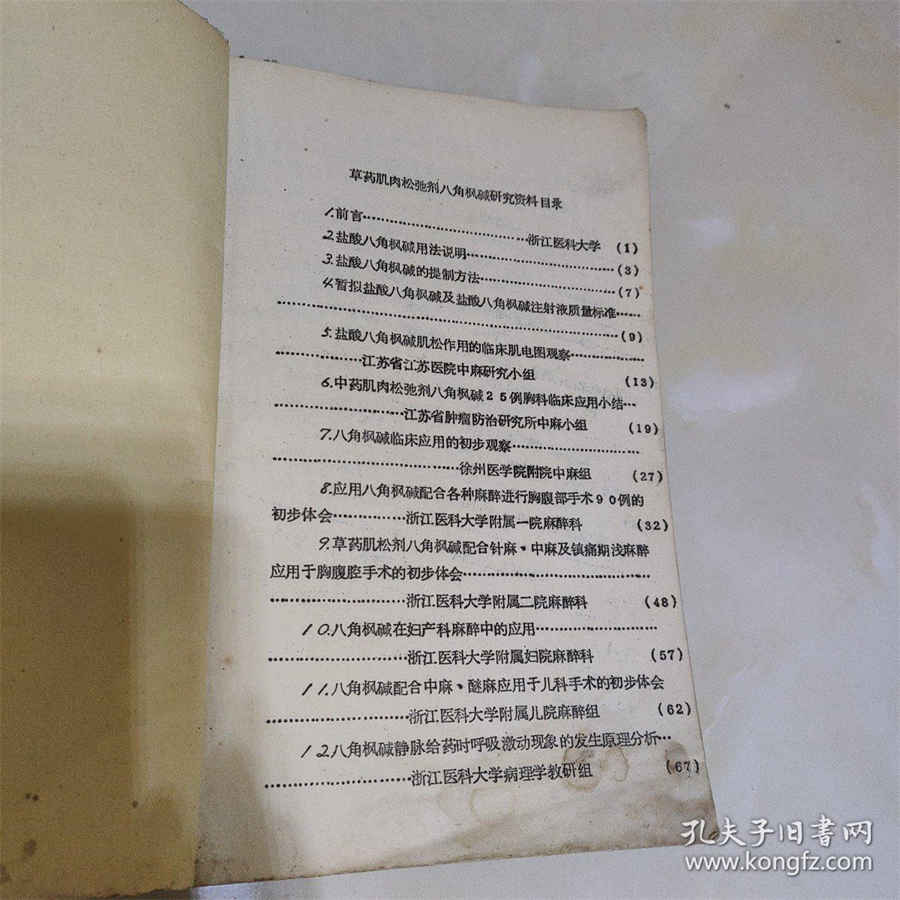 草药肌肉松弛剂八角枫碱研究资料目录
1.前言……………………………浙江医科大学 (1)
2.盐酸八角枫碱用法说明……………………(3)
3.盐酸八角枫碱的提制方法…………………(7)
4.暂拟盐酸八角枫碱及盐酸八角枫碱注射液质量标准……
……………………………………………(9)
5.盐酸八角枫碱肌松作用的临床肌电图观察……………
……………江苏省江苏医院中麻研究小组 (13)
6.中药肌肉松弛剂八角枫碱25例胸科临床应用小结…
………………江苏省肿瘤防治研究所中麻小组 (19)
7.八角枫碱临床应用的初步观察………………
………………………徐州医学院附院中麻组 (27)
8.应用八角枫碱配合各种麻醉进行胸腹部手术90例的
初步体会……………浙江医科大学附属一院麻醉科 (32)
9.草药肌松剂八角枫碱配合针麻、中麻及镇痛期浅麻醉
应用于胸腹腔手术的初步体会…………………………
………………浙江医科大学附属二院麻醉科 (48)
10.八角枫碱在妇产科麻醉中的应用………………
………………浙江医科大学附属妇院麻醉科 (57)
11.八角枫碱配合中麻、醚麻应用于儿科手术的初步体会
………………浙江医科大学附属儿院麻醉组 (62)
12.八角枫碱静脉给药时呼吸激动现象的发生原理分析…
………………浙江医科大学病理学教研组 (67)
孔夫子旧書网
www.kongfz.com